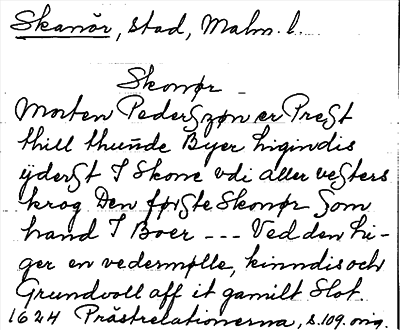 Skanör, stad, Malm. l.
Skonør
Morten Pederszøn er Prest
thill thuende Byer liginndis
yderst I Skone vdi aller vesters
krog Den første Skonør Som
hand I Boer --- Ved den li-
ger en vedermølle, kinndis och
Grundvoll aff it gamilt Slot.
1624 Prästrelationerna, s.109. orig.